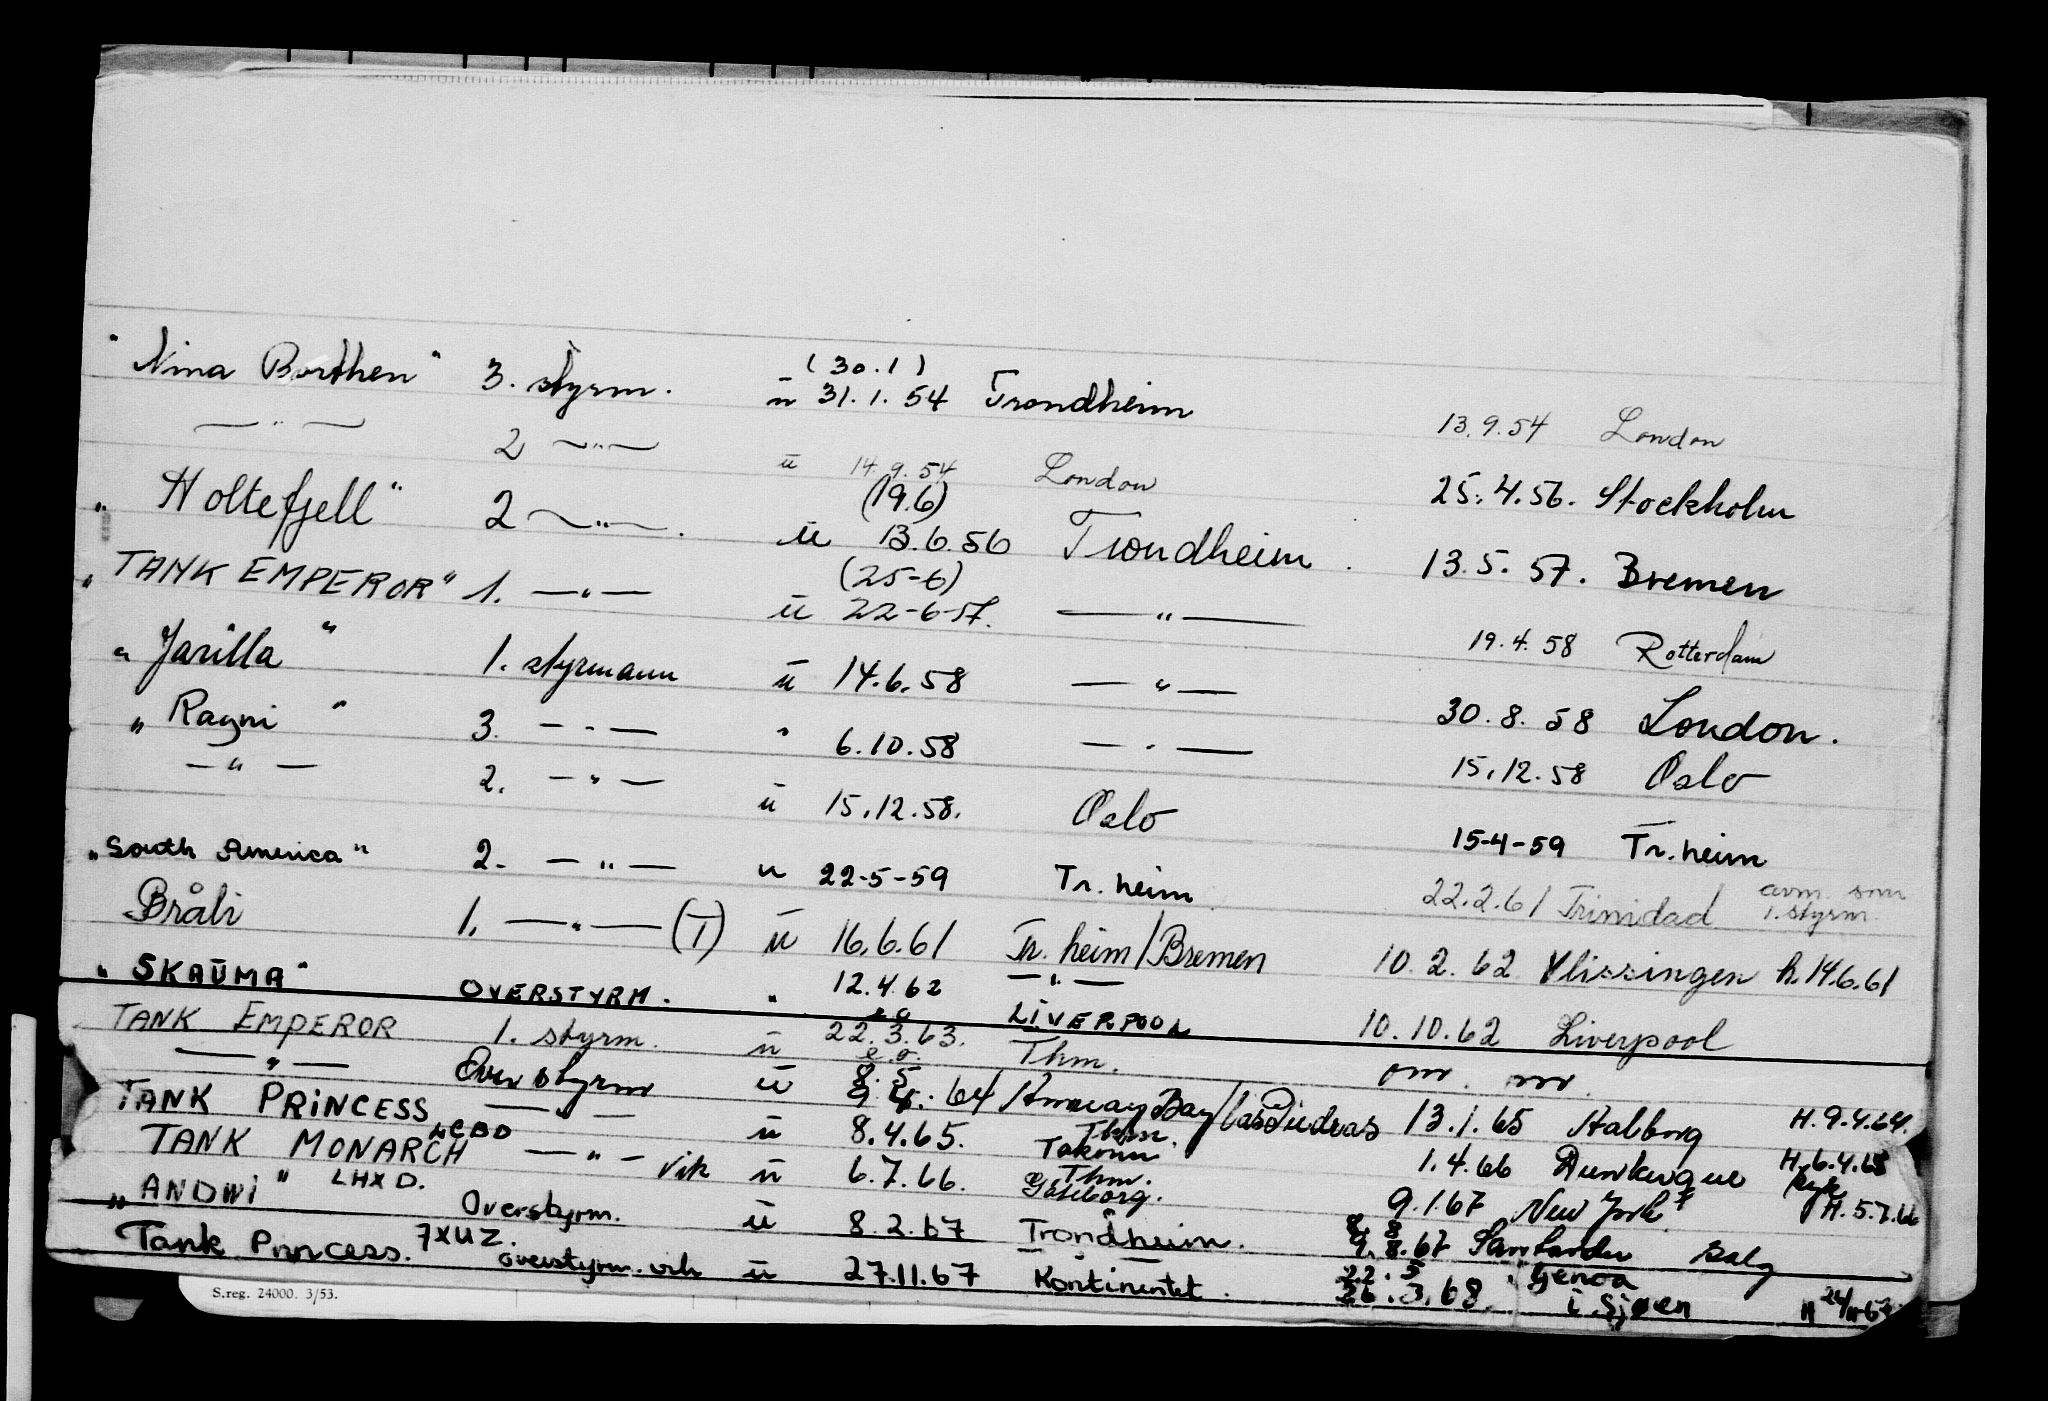 "Nina Borthen" 3. styrm. u (30.1) 31.1.54 Trondheim 13.9.54 London
— " — 2 — " — u 14.9.54 London 25.4.56. Stockholm
"Holtefjell" 2 — " —. u (19.6) 13.6.56 Trondheim. 13.5.57. Bremen
"TANK EMPEROR" 1. — " — u (25-6) 22-6-57. — " — 19.4.58 Rotterdam
"Jarilla" 1. styrmann u 14.6.58 — " — 30.8.58 London.
"Ragni" 3. — " — " 6.10.58 — " — 15.12.58 Oslo
— " — 2. — " — u 15.12.58. Oslo 15-4-59 Tr.heim
"South America" 2. — " — u 22-5-59 Tr.heim 22.2.61 Trinidad avm. som 1. styrm.
Bråli 1. — " — (T) u 16.6.61 Tr.heim/Bremen 10.2.62 Vlissingen h.14.6.61
"SKAUMA" OVERSTYRM. " 12.4.62 — " — LIVERPOOL 10.10.62 Liverpool
TANK EMPEROR 1. styrm. u 22.3.63. Thm.
— " — Overstyrm u 64 Amuay Bay/Las Piedras 13.1.65 Aalborg H.9.4.64.
TANK PRINCESS — " — u 8.4.65. Thm. 1.4.66 Dunkerque H.6.4.65
TANK MONARCH LCBD — " — vik u 6.7.66. Thm. Göteborg. 9.1.67 New York H.5.7.66
"ANDWI" LHXD. Overstyrm. u 8.2.67 Trondheim. 8.8 9.8.67 Santander salg
Tank Princess. 7XUZ. overstyrm. vik u 27.11.67 Kontinentet. 22.5 26.3.68. Genoa i sjøen H 24/11-67
S.reg. 24000. 3/53.